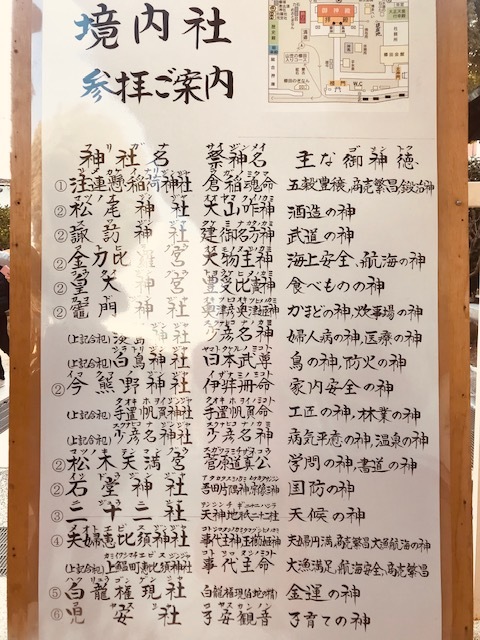 境内社
参拝ご案内
神社名 祭神名 主な御神徳
① 注連懸稲荷神社 倉稲魂命 五穀豊穣、商売繁昌、鍛冶神
② 松尾神社 大山咋神 酒造の神
② 諏訪神社 建御名方神 武道の神
② 金刀比羅宮 大物主神 海上安全、航海の神
② 皇大神宮 豊受比売神 食べものの神
② 竈門神社 かまどの神、炊事場の神
(上記合祀) 淡島神社 少彦名神 婦人病の神、医療の神
(上記合祀) 白鳥神社 日本武尊 鳥の神、防火の神
② 今熊野神社 伊弉冊命 家内安全の神
(上記合祀) 手置帆負神社 手置帆負命 工匠の神、林業の神
(上記合祀) 少彦名神社 少彦名神 病気平癒の神、温泉の神
② 松木天満宮 菅原道真公 学問の神、書道の神
② 石堂神社 吾田片隅神 宗像三神 国防の神
③ 二十二社 天神地祇二十二社 天候の神
④ 夫婦恵比須神社 事代主神 玉櫛姫神 夫婦円満、商売繁昌、大漁航海の神
(上記合祀) 上鰯町恵比須神社 事代主命 大漁満足、航海安全、商売繁昌
⑤ 白龍権現社 白龍権現 金運の神
⑥ 児安社 子安観音 子育ての神